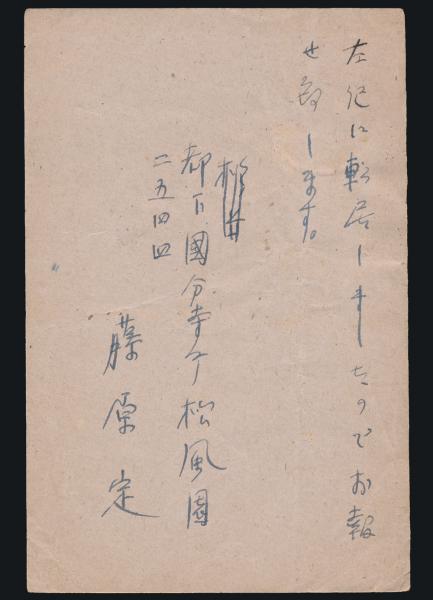 左記に転居しましたのでお報
せ致します。
都下國分寺町松風園
二五四四
藤原定